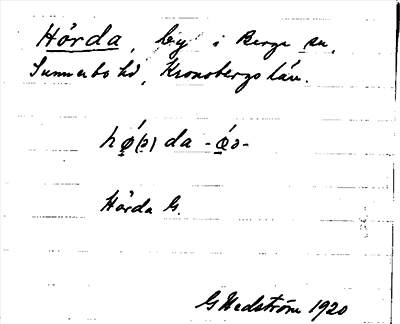 Hårda, by i Berga sn,
Sunnerbo hd, Kronobergs län.
hǿ(ə)da -ǿə-
Hårda G.
G Hedström 1920